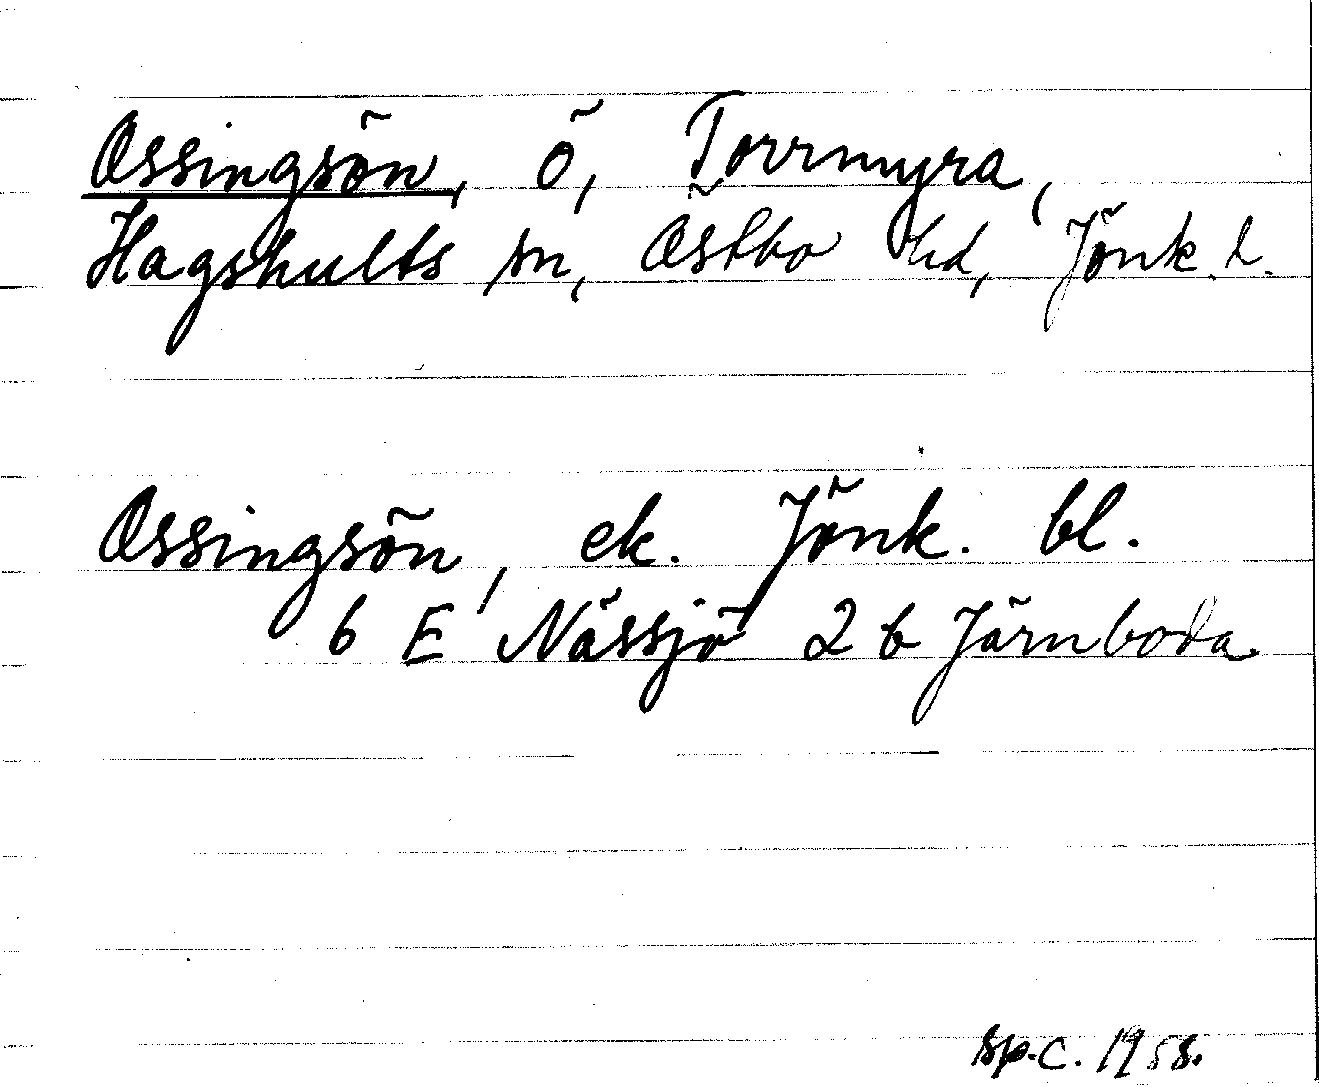 Ossingsön, ö, Torrmyra,
Hagshults sn, Östbo hd, Jönk. l.
Ossingsön, ek. Jönk. bl.
6 E Nässjö 2 b Järnboda
sp.c. 1958.